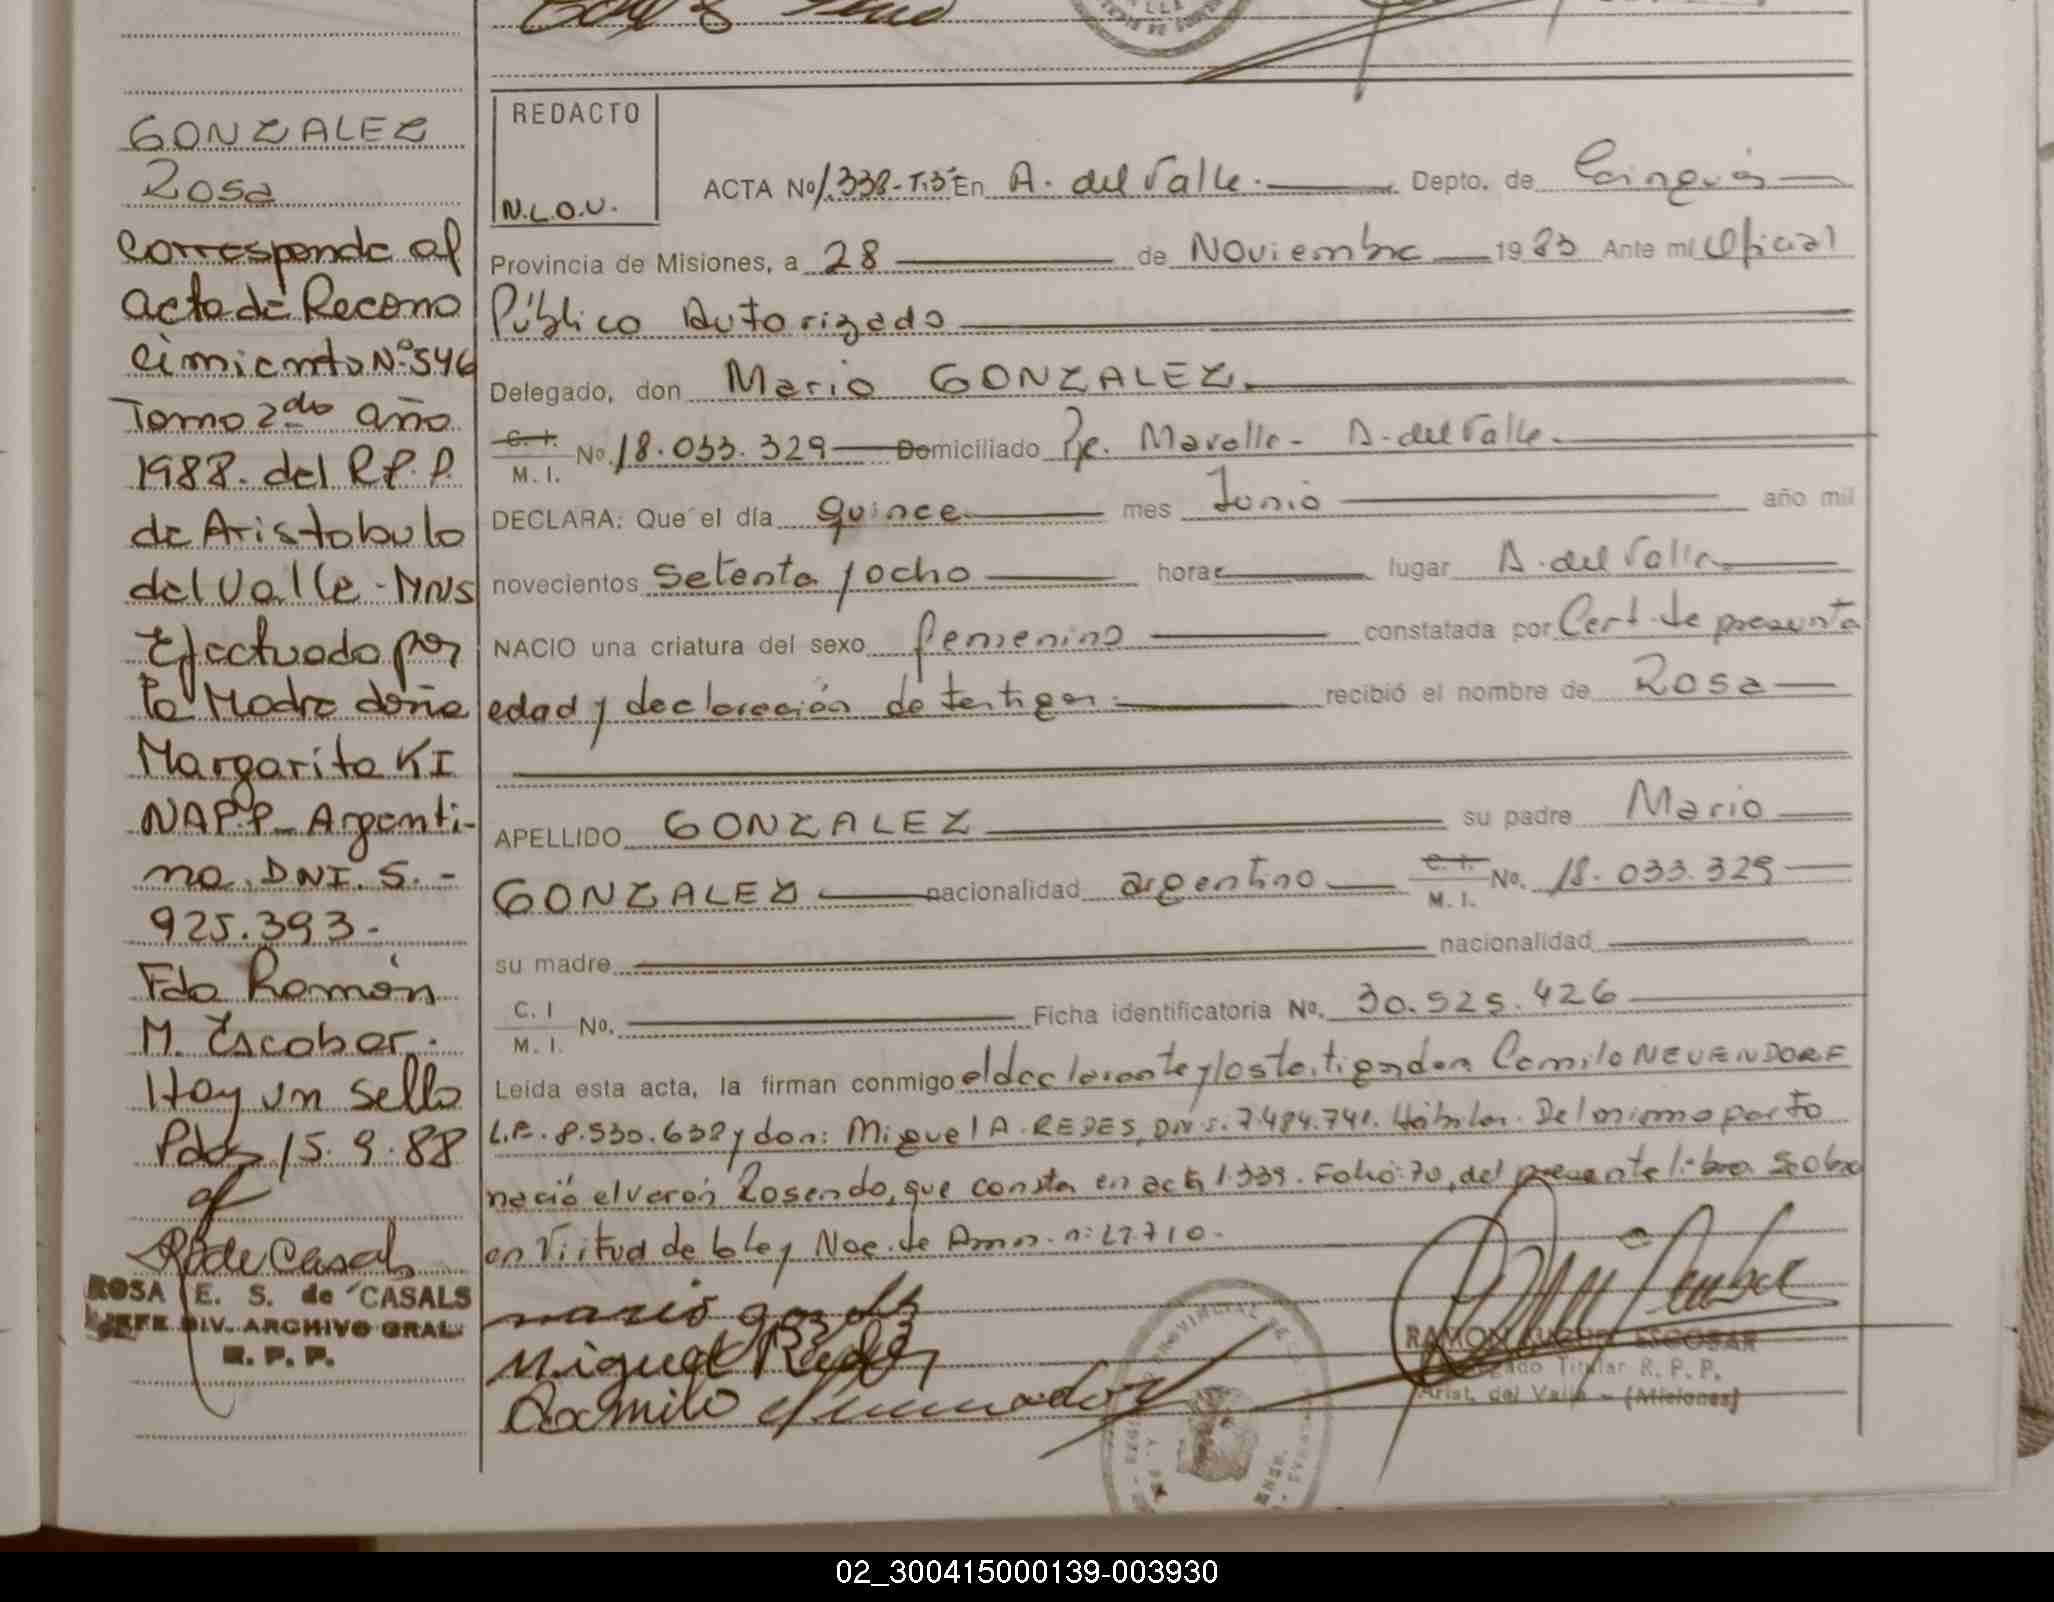 GONZALEZ
Rosa
Corresponde al
acta de Recono
cimiento Nº 546
Tomo 2do año
1988. del R.P.P.
de Aristobulo
del Valle - MNS
Efectuado por
la Madre doña
Margarita KI
NAPP - Argenti-
na. DNI. 5.-
925.393.-
Fdo Ramón
M. Escobar.
Hay un sello
Pdas 15.9.88
R de Casals
ROSA E. S. de CASALS
JEFE DIV. ARCHIVO GRAL.
R. P. P.
REDACTO
N.L.O.U.
ACTA Nº 1.338-T:3º En A. del Valle. Depto. de Cainguás
Provincia de Misiones, a 28 de Noviembre 1983 Ante mí Oficial
Público Autorizado
Delegado, don Mario GONZALEZ.
C. I.
M. I. No. 18.033.329 Domiciliado Pje. Marolla - A. del Valle.
DECLARA: Que el día quince mes Junio año mil
novecientos setenta y ocho horas lugar A. del Valle
NACIO una criatura del sexo femenino constatada por Cert. de presunta
edad y declaración de testigos. recibió el nombre de Rosa
APELLIDO GONZALEZ su padre Mario
GONZALEZ nacionalidad argentino C. I. M. I. No. 18.033.329
su madre nacionalidad
C. I
M. I. No. Ficha identificatoria No. 30.525.426
Leída esta acta, la firman conmigo el declarante y los testigos don Camilo NEUENDORF
L.E. 8.530.638 y don: Miguel A. REDES, DNI: 7.484.741. Hábiles. Del mismo parto
nació el varón Rosendo, que consta en acta 1.339. Folio: 70, del presente libro. Se obra
en Virtud de la ley Nac. de Amn. n: 22.710.
mario gonzalez
Miguel Redes
Camilo Neuendorf
RAMON ESCOBAR
Delegado Titular R. P. P.
Arist. del Valle - (Misiones)
02_300415000139-003930